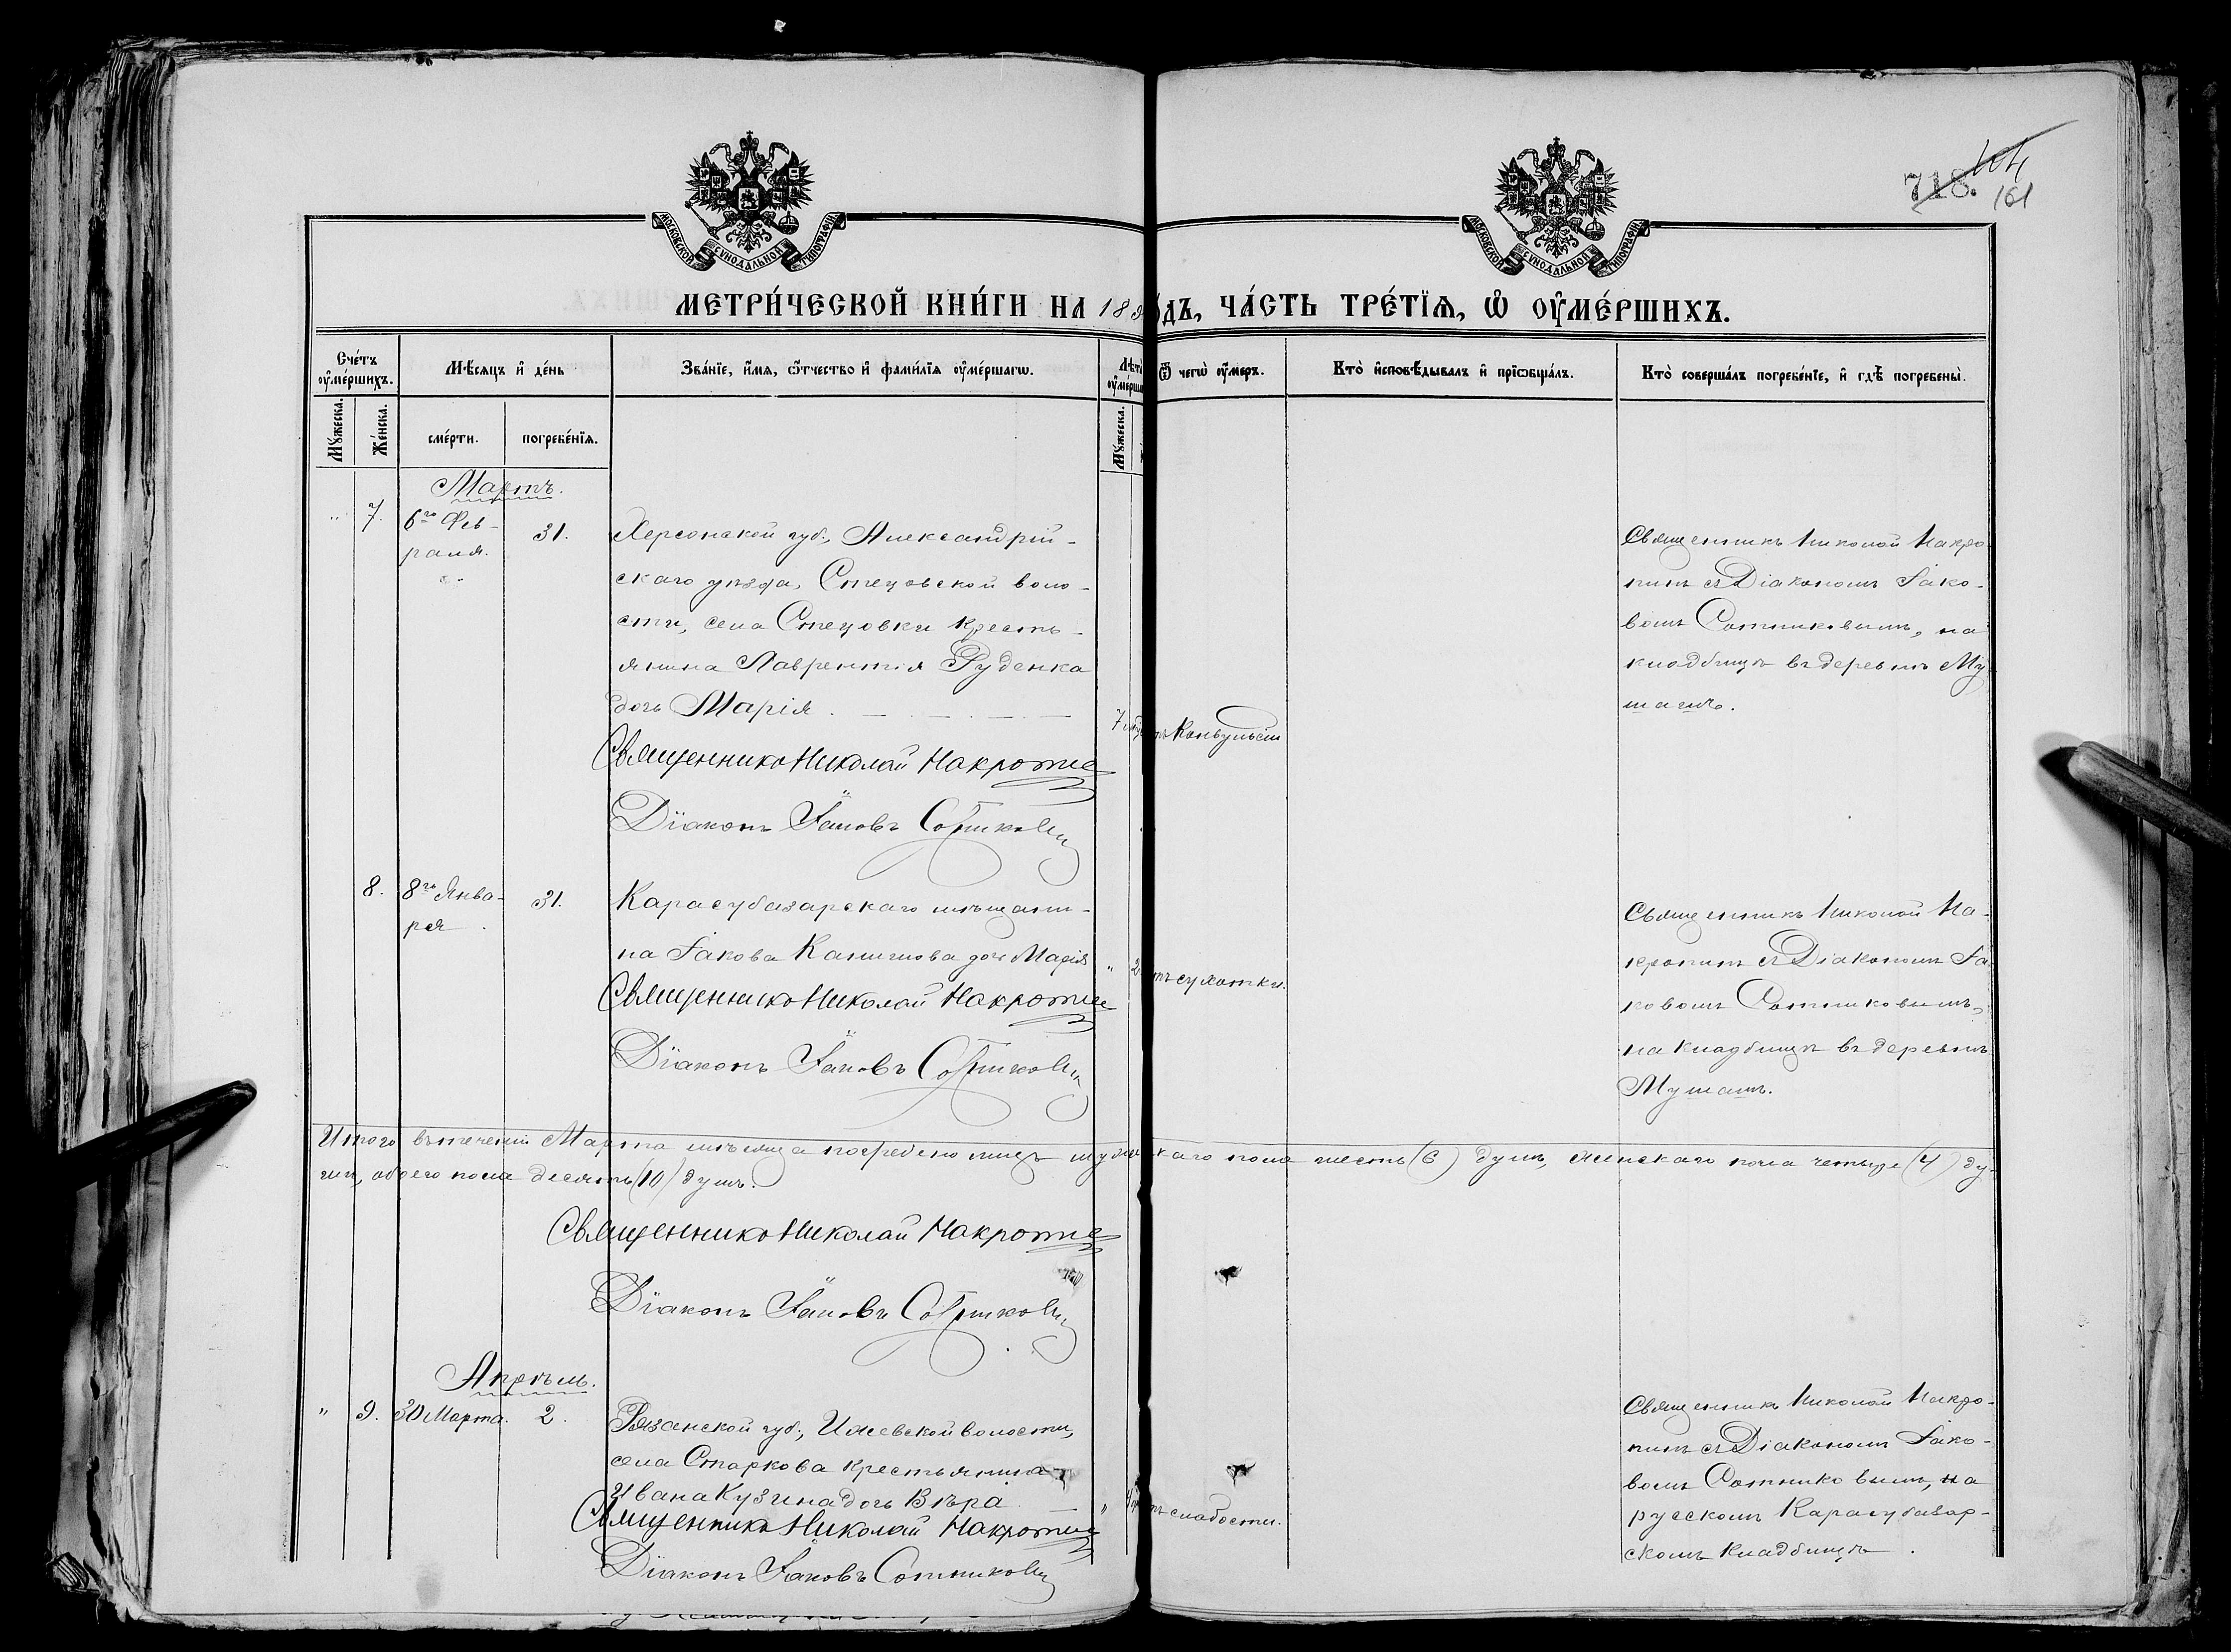 718. 104
161
МОСКОВСКОЙ СѴНОДАЛЬНОЙ ТИПОГРАФІИ
МОСКОВСКОЙ СѴНОДАЛЬНОЙ ТИПОГРАФІИ
МЕТРИ́ЧЕСКОЙ КНИ́ГИ НА 189
ДЪ, ЧА́СТЬ ТРЕ́ТЇѦ, Ѽ ОУ҆МЕ́РШИХЪ.
Сче́тъ оу҆ме́ршихъ.
Мѣ́сяцъ и҆ де́нь
Зва́нїе, и҆́мя, ѻ҆́тчество и҆ фами́лїя оу҆ме́ршагѡ.
Лѣта
оу҆ме́рша
Ѿ чегѡ̀ оу҆́меръ.
Кто̀ и҆сповѣ́дывалъ и҆ прїѡбща́лъ.
Кто̀ соверша́лъ погребе́нїе, и҆ гдѣ̀ погребены̀.
Мꙋжеска.
Же́нска.
сме́рти.
погребе́нїя.
Мꙋжеска.
Мартъ.
" 7. 6го Фев-
раля.
31.
Херсонской губ., Александрій-
скаго уѣзда, Стецовской воло-
сти, села Стецовки кресть-
янина Лаврентія Руденка
дочь Марія.
7
Конвульсіи
Священникъ Николай Макро-
тинъ съ Діакономъ Іако-
вомъ Сотниковымъ, на
кладбищѣ въ деревнѣ Му-
шашъ.
Священникъ Николай
Діаконъ Іаковъ Сотниковъ
8. 8го Янва-
ря
31.
Карасубазарскаго мѣщани-
на Іакова дочь Марія
" 2
сухотки.
Священникъ Николай Ма-
кротинъ съ Діакономъ Іа-
ковомъ Сотниковымъ,
на кладбищѣ въ деревнѣ
Мушашъ.
Священникъ Николай
Діаконъ Іаковъ Сотниковъ
Итого въ теченіи Марта мѣсяца погребено лицъ мужскаго пола шесть (6) душъ, женскаго пола четыре (4) ду-
ши, обоего пола десять (10) душъ.
Священникъ Николай
Діаконъ Іаковъ Сотниковъ
Апрѣль.
" 9. 30 Марта. 2.
Рязанской губ., волости,
села Старкова крестьянина
Ивана Кузина дочь Вѣра
"
слабости.
Священникъ Николай Макро-
тинъ съ Діакономъ Іако-
вомъ Сотниковымъ, на
русскомъ Карасубазар-
скомъ кладбищѣ.
Священникъ Николай
Діаконъ Іаковъ Сотниковъ